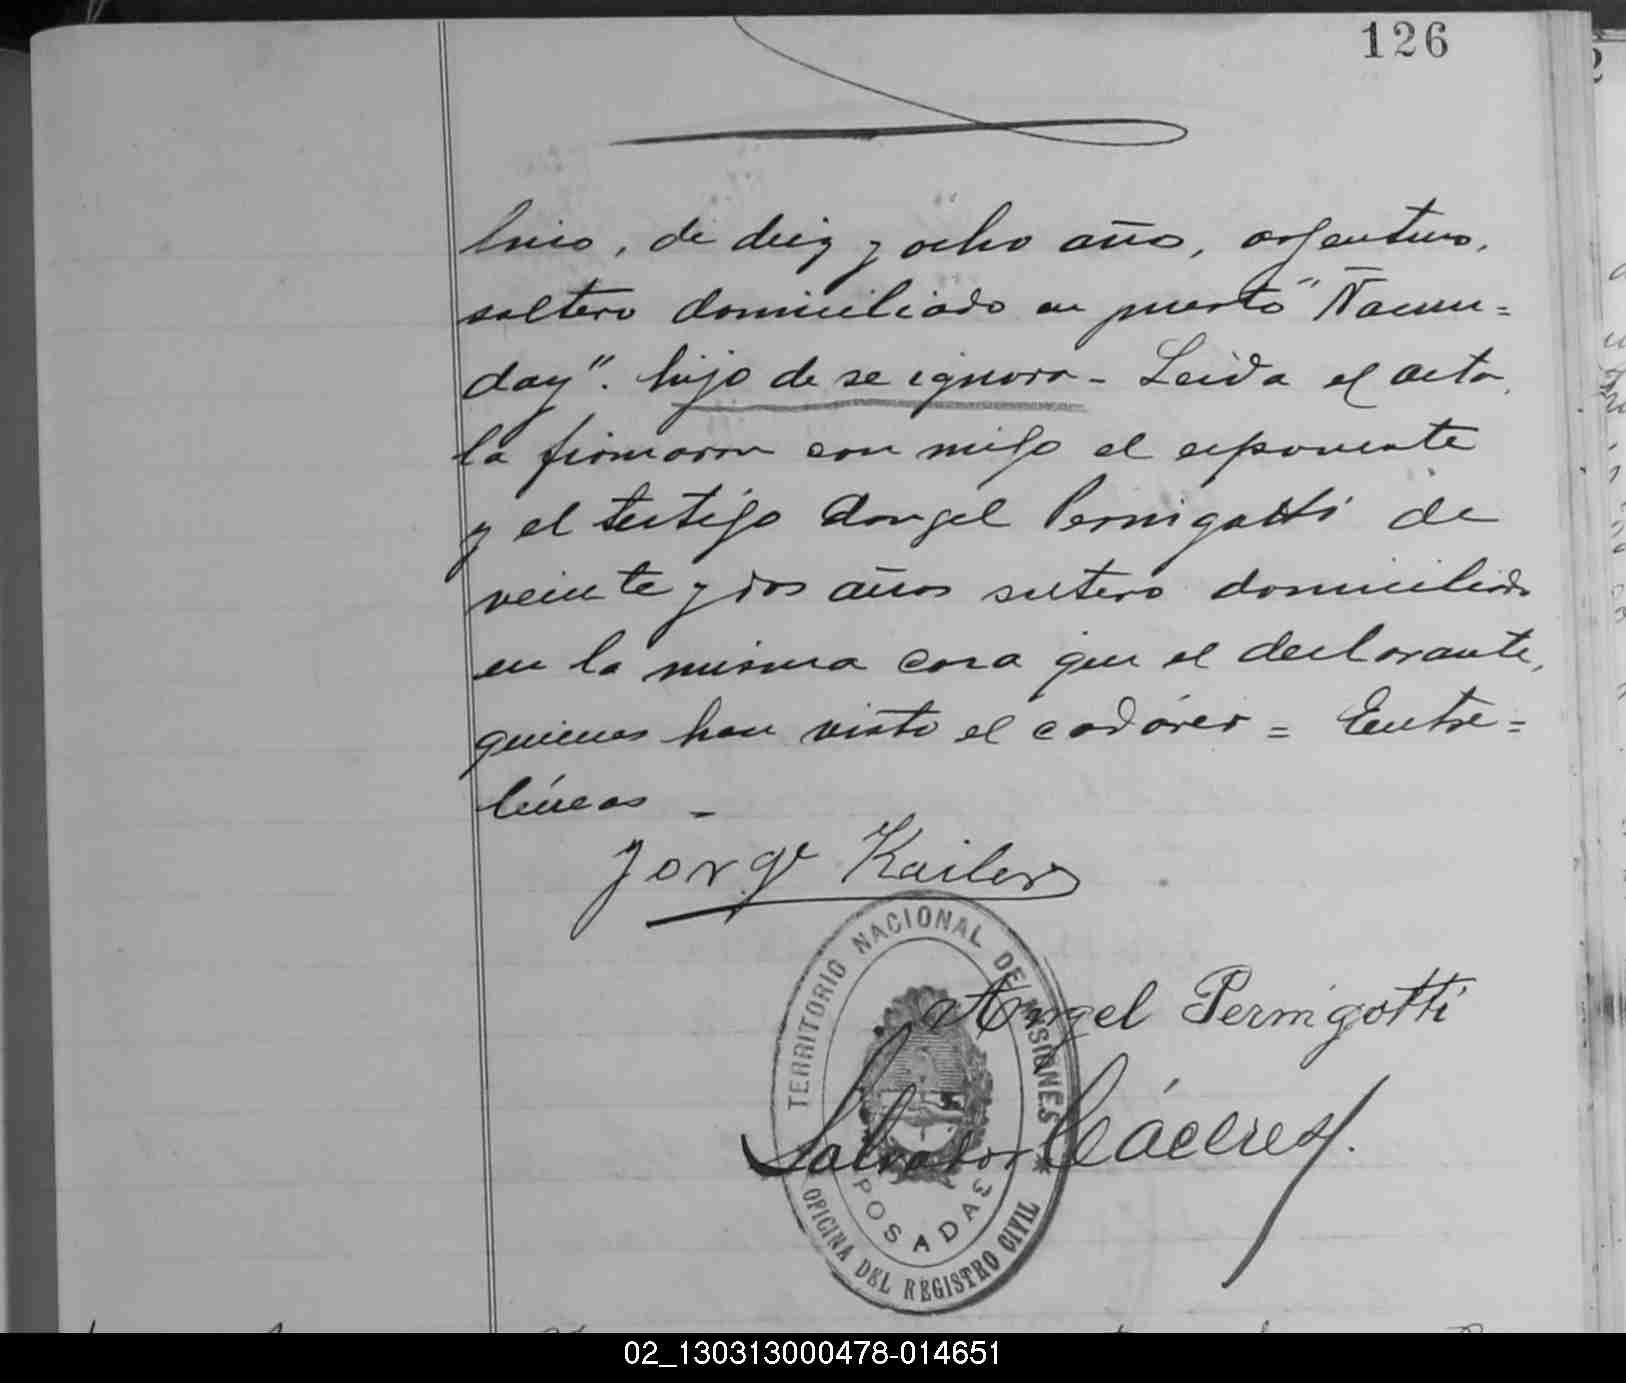 126
lino, de diez y ocho año, argentino,
soltero domiciliado en puerto "Ñacun=
day". hijo de se ignora - Leida el acta,
la firmaron con migo el exponente
y el testigo Angel Pernigotti de
veinte y dos años soltero domiciliado
en la misma casa que el declarante,
quienes han visto el cadáver = Entre=
líneas -
Jorge Kailer
TERRITORIO NACIONAL DE MISIONES
Angel Pernigotti
Salvador Cáceres.
POSADAS
OFICINA DEL REGISTRO CIVIL
02_130313000478-014651